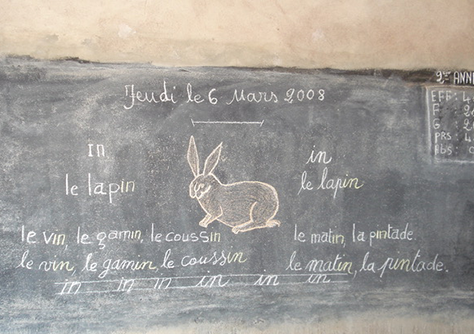 2ème ANN
Jeudi le 6 Mars 2008
EFF: 4
F
G
PRS: 4
Abs:
in in
le lapin le lapin
le vin, le gamin, le coussin le matin, la pintade.
le vin, le gamin, le coussin le matin, la pintade.
in in in in in in